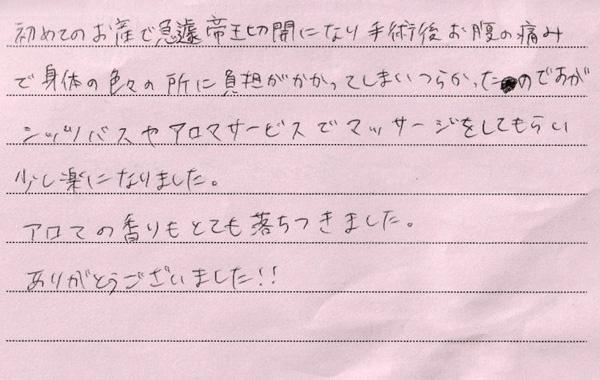 初めてのお産で急遽帝王切開になり手術後お腹の痛み
で身体の色々の所に負担がかかってしまいつらかったのですが
シッツバスやアロマサービスでマッサージをしてもらい
少し楽になりました。
アロマの香りもとても落ちつきました。
ありがとうございました!!